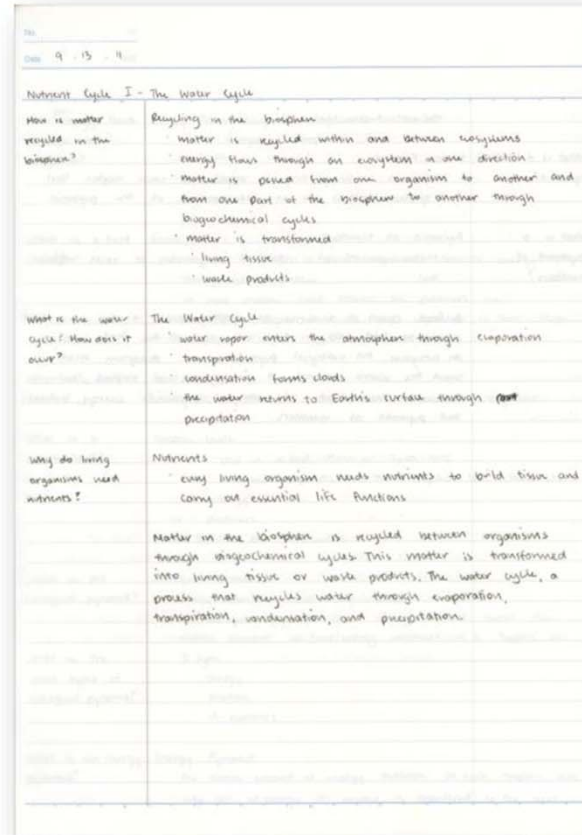 No.
Date 9 . 13 . 11
Nutrient Cycle I - The Water Cycle
How is matter
recycled in the
biosphere?
Recycling in the biosphere
· matter is recycled within and between ecosystems
· energy flows through an ecosystem in one direction
· matter is passed from one organism to another and
from one part of the biosphere to another through
biogeochemical cycles
· matter is transformed
· living tissue
· waste products
What is the water
cycle? How does it
occur?
The Water Cycle
· water vapor enters the atmosphere through evaporation
· transpiration
· condensation forms clouds
· the water returns to Earth's surface through
precipitation
Why do living
organisms need
nutrients?
Nutrients
· every living organism needs nutrients to build tissue and
carry out essential life functions
Matter in the biosphere is recycled between organisms
through biogeochemical cycles. This matter is transformed
into living tissue or waste products. The water cycle, a
process that recycles water through evaporation,
transpiration, condensation, and precipitation.